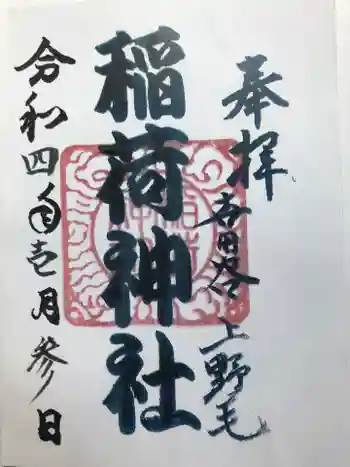 奉拝
上野毛
稲荷神社
令和四年壱月参日